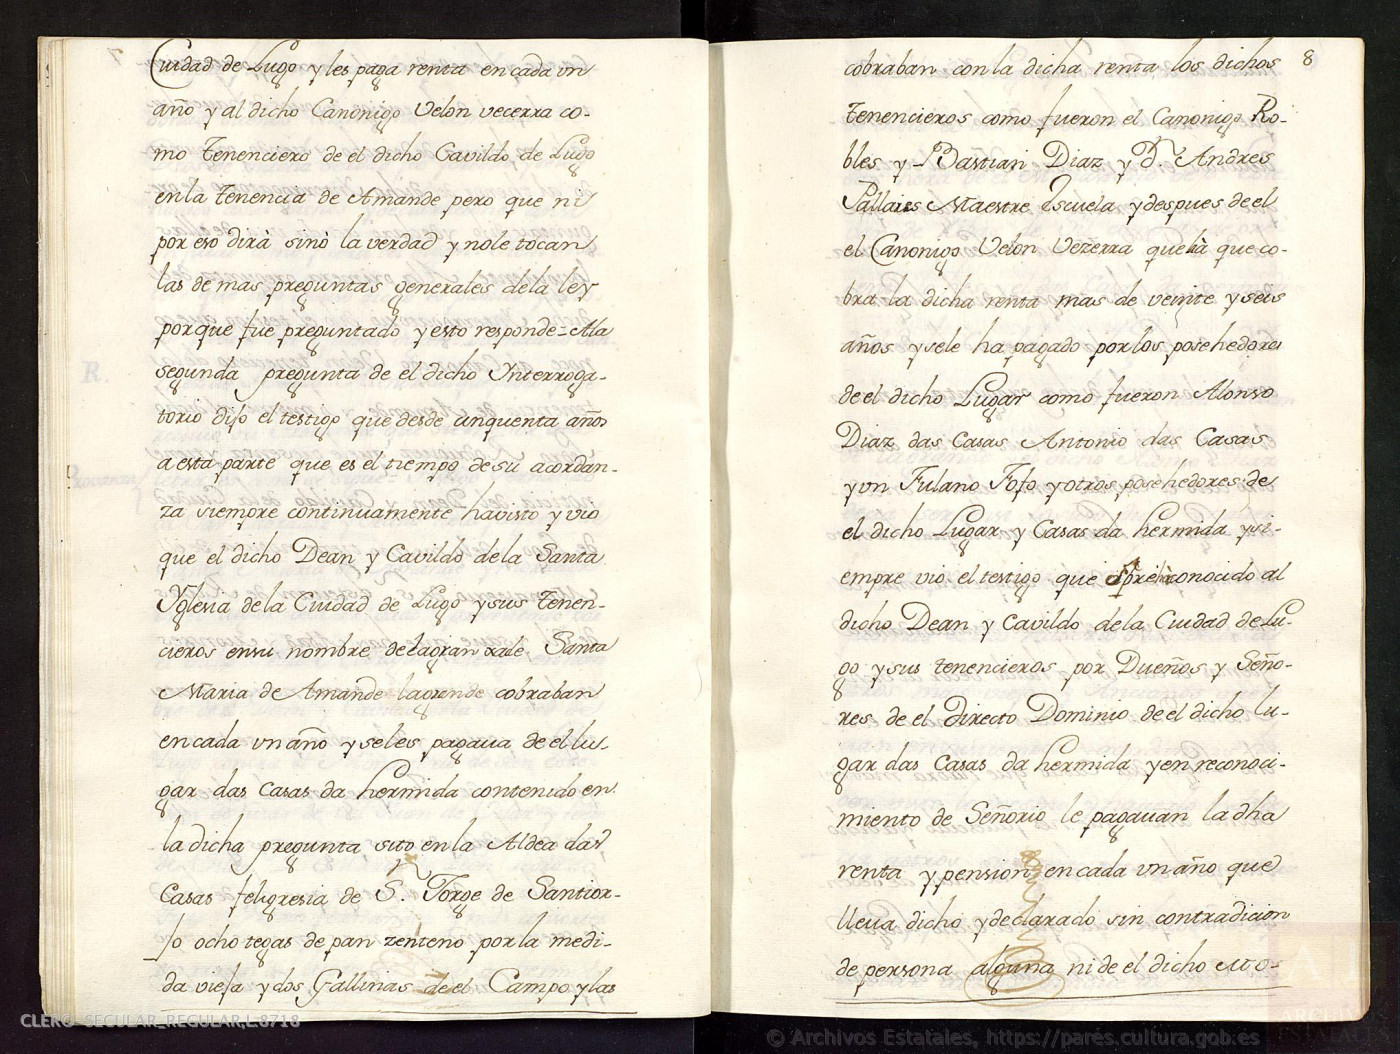 Ciudad de Lugo y les paga renta en cada vn
año y al dicho Canonigo Velon vecerra co-
mo Tenenciero de el dicho Cavildo de Lugo
en la tenencia de Amande pero que ni
por eso dirà sinò la verdad y nole tocan
las de mas preguntas generales dela ley
porque fue preguntado y esto responde = Ala
segunda pregunta de el dicho Ynterroga-
torio dijo el testigo que desde cinquenta años
a esta parte que es el tiempo de su acordan-
za siempre continuamente ha visto y vio
que el dicho Dean y Cavildo de la Santa
Yglesia de la Ciudad de Lugo y sus Tenen-
cieros en su nombre de Santa
Maria de Amande cobraban
en cada vn año y seles pagaua de el lu-
gar das Casas da hermida contenido en
la dicha pregunta sito en la Aldea das
Casas feligresia de S.n Jorge de Santior-
jo ocho tegas de pan zenteno por la medi-
da vieja y dos Gallinas de el Campo y las
8
cobraban con la dicha renta los dichos
tenencieros como fueron el Canonigo Ro-
bles y Bastian Diaz y D.n Andres
Pallares Maestre Escuela y despues de el
el Canonigo Velon Vezerra que hà que co-
bra la dicha renta mas de veinte y seis
años y sele ha pagado por los posehedores
de el dicho Lugar como fueron Alonso
Diaz das Casas Antonio das Casas
y vn Fulano Fofo y otros posehedores de
el dicho Lugar y Casas da hermida y si-
empre vio el testigo que conocido al
dicho Dean y Cavildo dela Ciudad de Lu-
go y sus tenencieros por Dueños y Seño-
res de el directo Dominio de el dicho lu-
gar das Casas da hermida y en reconoci-
miento de Señorio le pagauan la dha
renta y pension en cada vn año que
lleua dicho y declarado sin contradicion
de persona alguna ni de el dicho Mo-
CLERO-SECULAR_REGULAR,L.8718
© Archivos Estatales, https://pares.cultura.gob.es